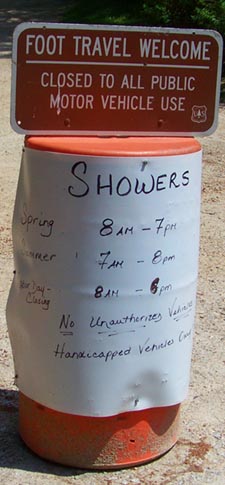 FOOT TRAVEL WELCOME
CLOSED TO ALL PUBLIC
MOTOR VEHICLE USE
SHOWERS
Spring 8AM - 7PM
Summer 7AM - 8PM
Day - Closing 8AM - 6PM
No Unauthorized Vehicles
Handicapped Vehicles